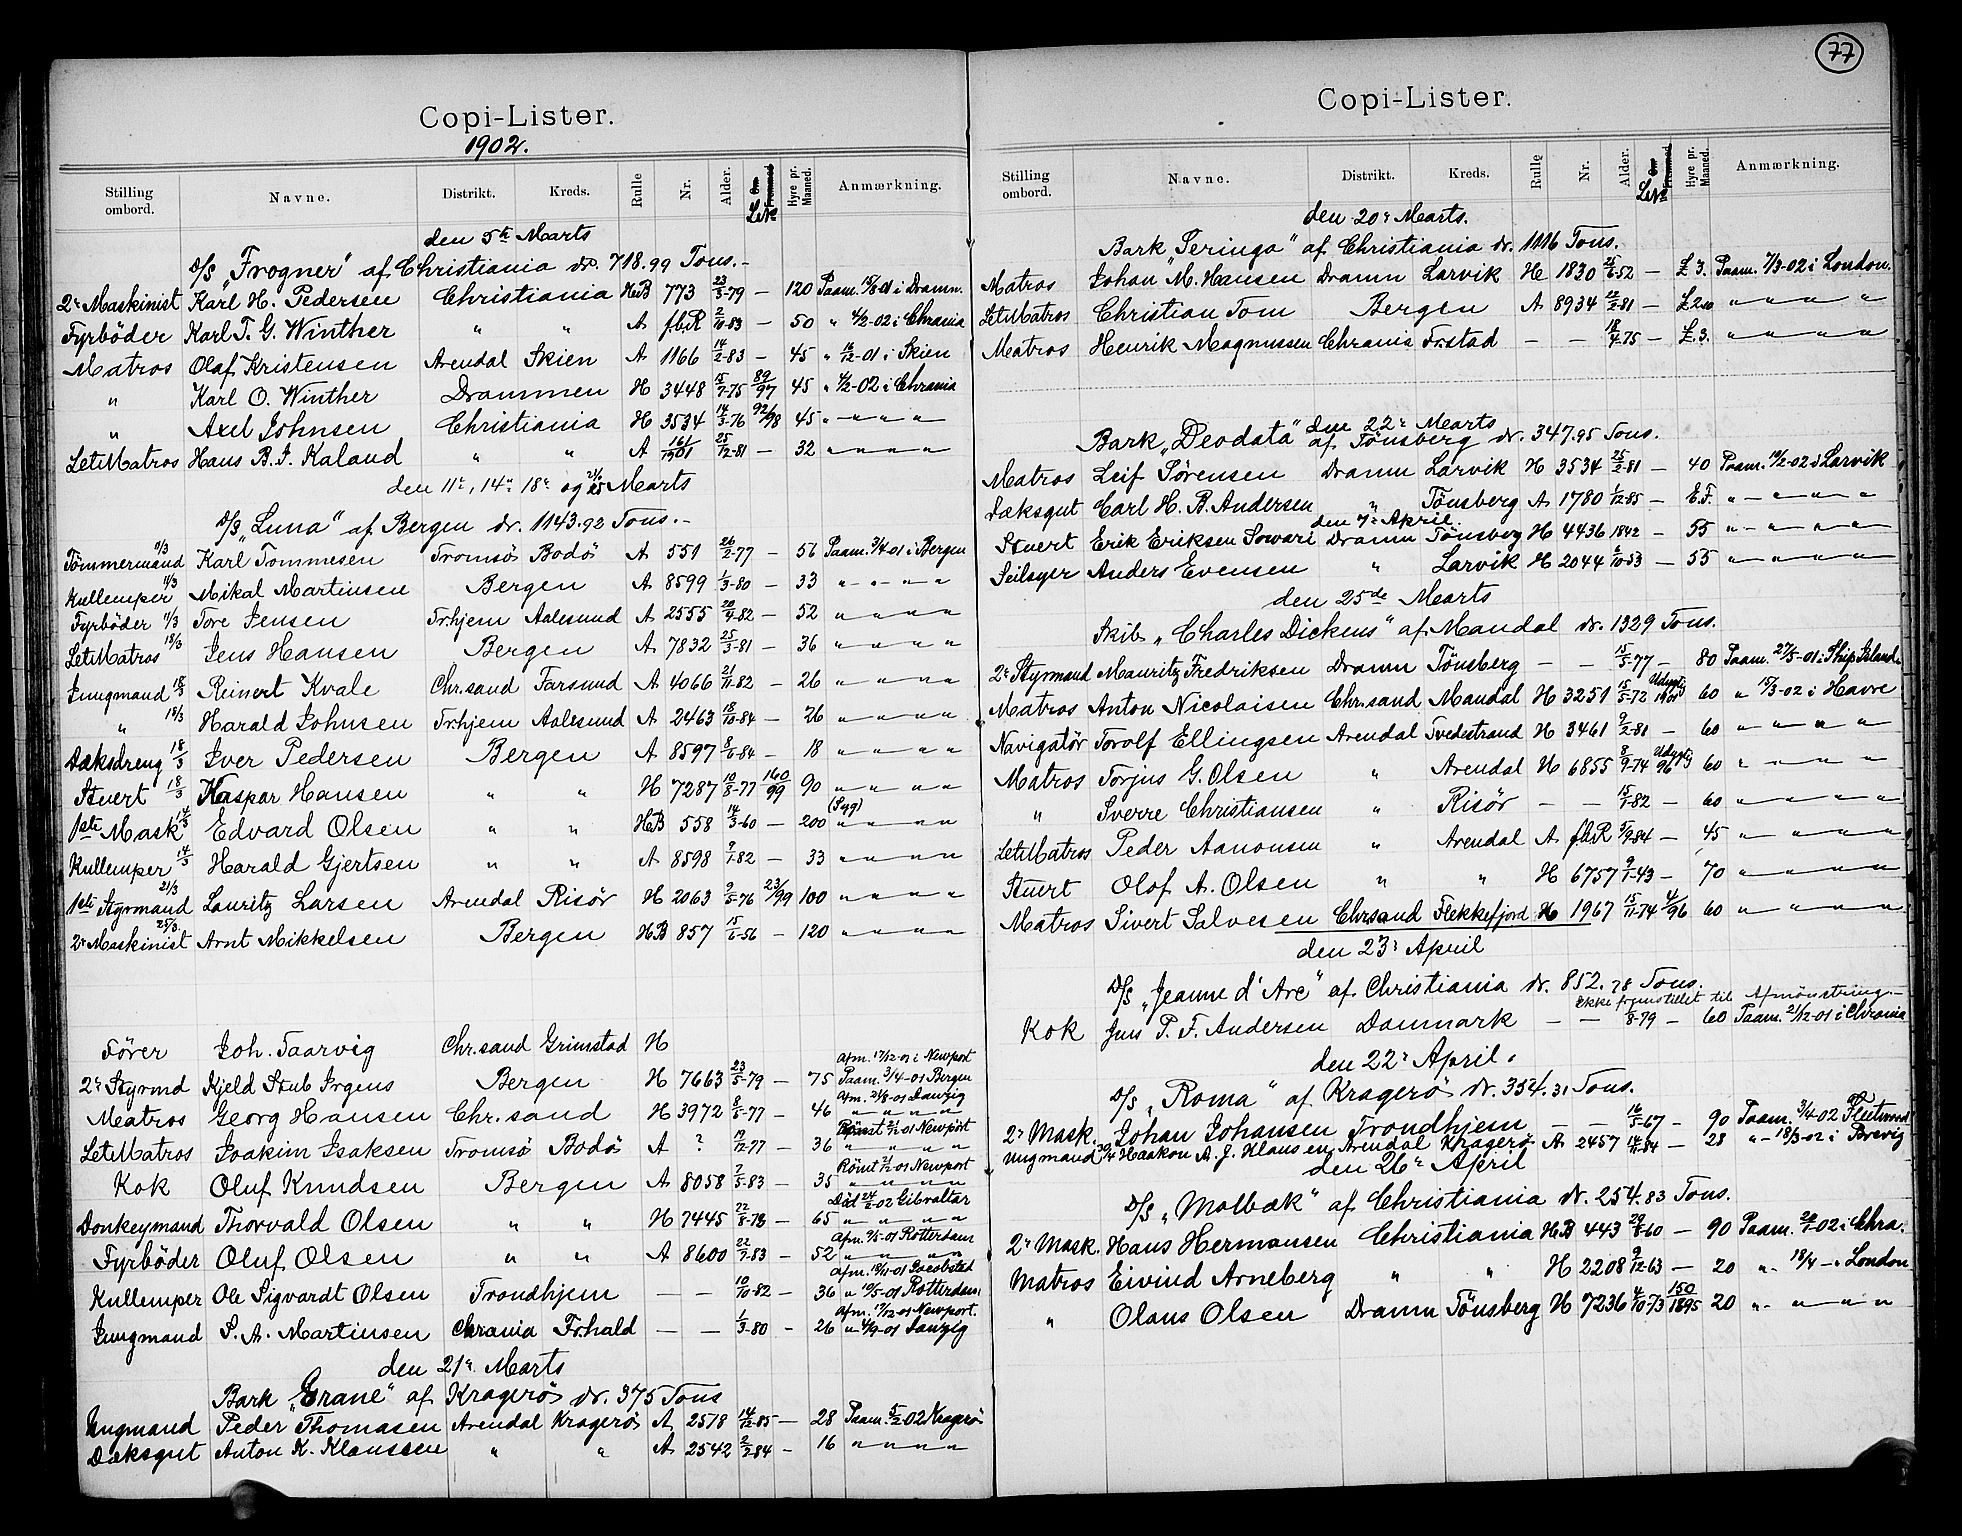 Copi-Lister.
1902.
Stilling ombord. Navne. Distrikt. Kreds. Rulle Nr. Alder. Hyre pr. Maaned. Anmærkning.
den 5te Marts
D/S „Frogner" af Christiania dr. 718.99 Tons.-
2r Maskinist Karl H. Pedersen Christiania HB 773 23/3-79 — 120 Paam. 15/8 01 i Dramn.
Fyrböder Karl T. G. Winther " " A f.b.R 2/10-83 — 50 " 4/2-02 i Chrania
Matros Olaf Kristensen Arendal Skien A 1166 14/2-83 — 45 " 16/12-01 i Skien
" Karl O. Winther Drammen H 3448 15/7-75 89/97 45 " 4/2-02 i Chrania
" Axel Johnsen Christiania H 3534 14/3-76 92/98 45 " — " — " — "
LetMatros Hans B. J. Kaland " " A 16/1901 25/12-81 — 32 " — " — " — "
den 11te, 14te 18te og 21/25 Marts
D/S „Luna" af Bergen dr. 1143.92 Tons.-
Tömmermand 11/3 Karl Tommesen Tromsö Bodö A 551 26/2-77 — 56 Paam. 3/4-01 i Bergen
Kullemper 11/3 Mikal Martinsen Bergen A 8599 1/3-80 — 33 " — " — " — "
Fyrböder 11/3 Tore Jensen Tr.hjem Aalesund A 2555 20/4-82 — 52 " — " — " — "
LetMatros 18/3 Jens Hansen Bergen A 7832 25/3-81 — 36 " — " — " — "
Jungmand 18/3 Reinert Kvale Chr.sand Farsund A 4066 21/11-82 — 26 " — " — " — "
" 18/3 Harald Johnsen Tr.hjem Aalesund A 2463 18/10-84 — 26 " — " — " — "
Dæksdreng 18/3 Iver Pedersen Bergen A 8597 8/6-84 — 18 " — " — " — "
Stuert 18/3 Kaspar Hansen " " H 7287 10/8-77 160/99 90 " — " — " — "
1ste Mask 14/3 Edvard Olsen " " HB 558 14/3-60 — 200 (Syg) " — " — " — "
Kullemper 14/3 Harald Gjertsen " " A 8598 9/1-82 — 33 " — " — " — "
1ste Styrmand 21/3 Lauritz Larsen Arendal Risör H 2063 9/5-76 23/99 100 " — " — " — "
2r Maskinist 25/3 Arnt Mikkelsen Bergen HB 857 15/6-56 — 120 " — " — " — "
Förer Joh. Taarvig Chr.sand Grimstad H
Afm. 17/12-01 i Newport
2r Styrmd Kjeld Stub Irgens Bergen H 7663 23/5-79 — 75 Paam. 3/4-01 Bergen
Afm. 21/8-01 Danzig
Matros Georg Hansen Chr.sand H 3972 8/5-77 — 46 " — " — " — "
Römt 21/12-01 Newport
LetMatros Joakim Isaksen Tromsö Bodö A ? 19/12-77 — 36 " — " — " — "
Römt 21/12-01 Newport
Kok Oluf Knudsen Bergen A 8058 7/5-83 — 35 " — " — " — "
Död 24/2-02 Gibraltar
Donkeymand Thorvald Olsen " " H 7445 22/8-78 — 65 " — " — " — "
Afm. 9/5-01 Rotterdam
Fyrböder Oluf Olsen " " A 8600 22/7-83 — 52 " — " — " — "
Afm. 18/11-01 Jacobstad
Kullemper Ole Sigvardt Olsen Trondhjem — — 10/10-82 — 36 " 10/5-01 Rotterdam
Afm. 17/12-01 Newport.
Jungmand S. A. Martinsen Chrania Fr.hald — — 1/3-80 — 26 " 4/9-01 Danzig
den 21r. Marts
Bark „Grane" af Kragerö dr. 375 Tons
Ungmand Peder Thomasen Arendal Kragerö A 2578 14/12-85 — 28 Paam. 5/2-02 Kragerö
Dæksgut Anton K. Klaussen " " A 2542 2/2-84 — 16 " — " — " — "
77
Copi-Lister.
Stilling ombord. Navne. Distrikt. Kreds. Rulle Nr. Alder. Hyre pr. Maaned. Anmærkning.
den 20r Marts.
Bark „Seringa" af Christiania dr. 1116 Tons.
Matros Johan M. Hansen Dramn Larvik H 1830 25/6-52 — £ 3. Paam. 7/3-02 i London.
LetMatros Christian Tom Bergen A 8934 22/2-81 — £2.10 " — " — " "
Matros Henrik Magnussen Chrania Fr.stad — — 18/4-75 — £.3. " — " — " — "
den 22r Marts
Bark „Deodata" af Tönsberg dr. 347.95 Tons.
Matros Leif Sörensen Dramn Larvik H 3534 25/2-81 — 40 Paam. 19/2-02 i Larvik
Dæksgut Carl H. B. Andersen " Tönsberg A 1780 1/12-85 — E.F. " — " — " — "
den 7r April.
Stuert Erik Eriksen Sowari Dramn Tönsberg H 4436 1842 — 55 " — " — " — "
Seilsyer Anders Evensen " Larvik H 2044 2/10-53 — 55 " — " — " — "
den 25de Marts
Skib „Charles Dickens" af Mandal dr. 1329 Tons.
2r Styrmand Mauritz Fredriksen Dramn Tönsberg — — 15/5-77 — 80 Paam. 27/5-01 i Ship Island.
Matros Anton Nicolaisen Chr.sand Mandal H 3251 15/5-72 Udygt 1901 60 " 15/3-02 i Havre
Navigatör Torolf Ellingsen Arendal Tvedestrand H 3461 9/2-81 — 60 " — " — " — "
Matros Torjus G. Olsen " Arendal H 6855 8/9-74 Udygt 96 60 " — " — " — "
" Sverre Christiansen " Risör — — 15/1-82 — 60 " — " — " — "
LetMatros Peder Aanonsen " Arendal A f.b.R 5/9-84 — 45 " — " — " — "
Stuert Olaf A. Olsen " " H 6757 9/1-43 — 70 " — " — " — "
Matros Sivert Salvesen Chr.sand Flekkefjord H 1967 15/11-74 4/96 60 " — " — " — "
den 23r April
D/S „Jeanne d'Arc" af Christiania dr. 852.78 Tons.
Ikke fremstillet til Afmönstring.-
Kok Jens P. F. Andersen Danmark — — 1/8-79 — 60 Paam. 21/12-01 i Chrania
den 22r April.
D/S „Roma" af Kragerö dr. 354.31 Tons.
2r Mask. Johan Johansen Trondhjem — — 16/5-67 — 90 Paam. 3/4-02 Fleetwood
Ungmand Haakon A. J. Klausen Arendal Kragerö A 2457 14/11-84 — 28 " — 18/3-02 i Brevig
den 26r April
D/S „Molbæk" af Christiania dr. 254.83 Tons.
2r Mask. Hans Hermansen Christiania HB 443 29/8-60 — 90 Paam. 20/1-02 i Chra.
Matros Eivind Arneberg " " H 2208 9/12-63 — 20 " 18/4 — i London
" Olaus Olsen Dramn Tönsberg H 7236 4/10-73 150/1895 20 " — " — " — "